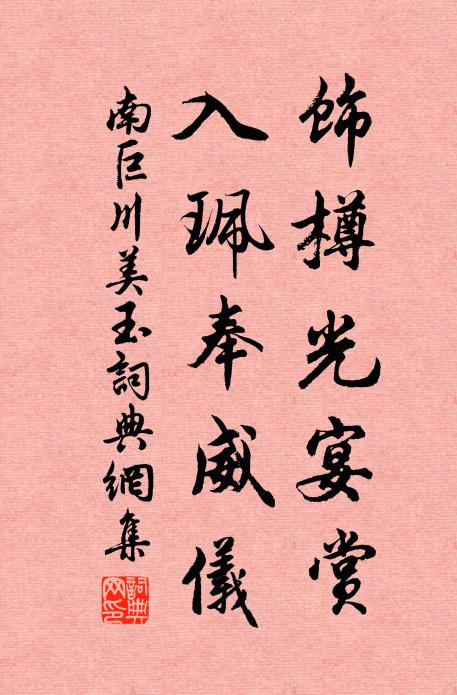 飾樽光宴賞
入珮奉威儀
南巨川美玉詞典網集
詞典網印